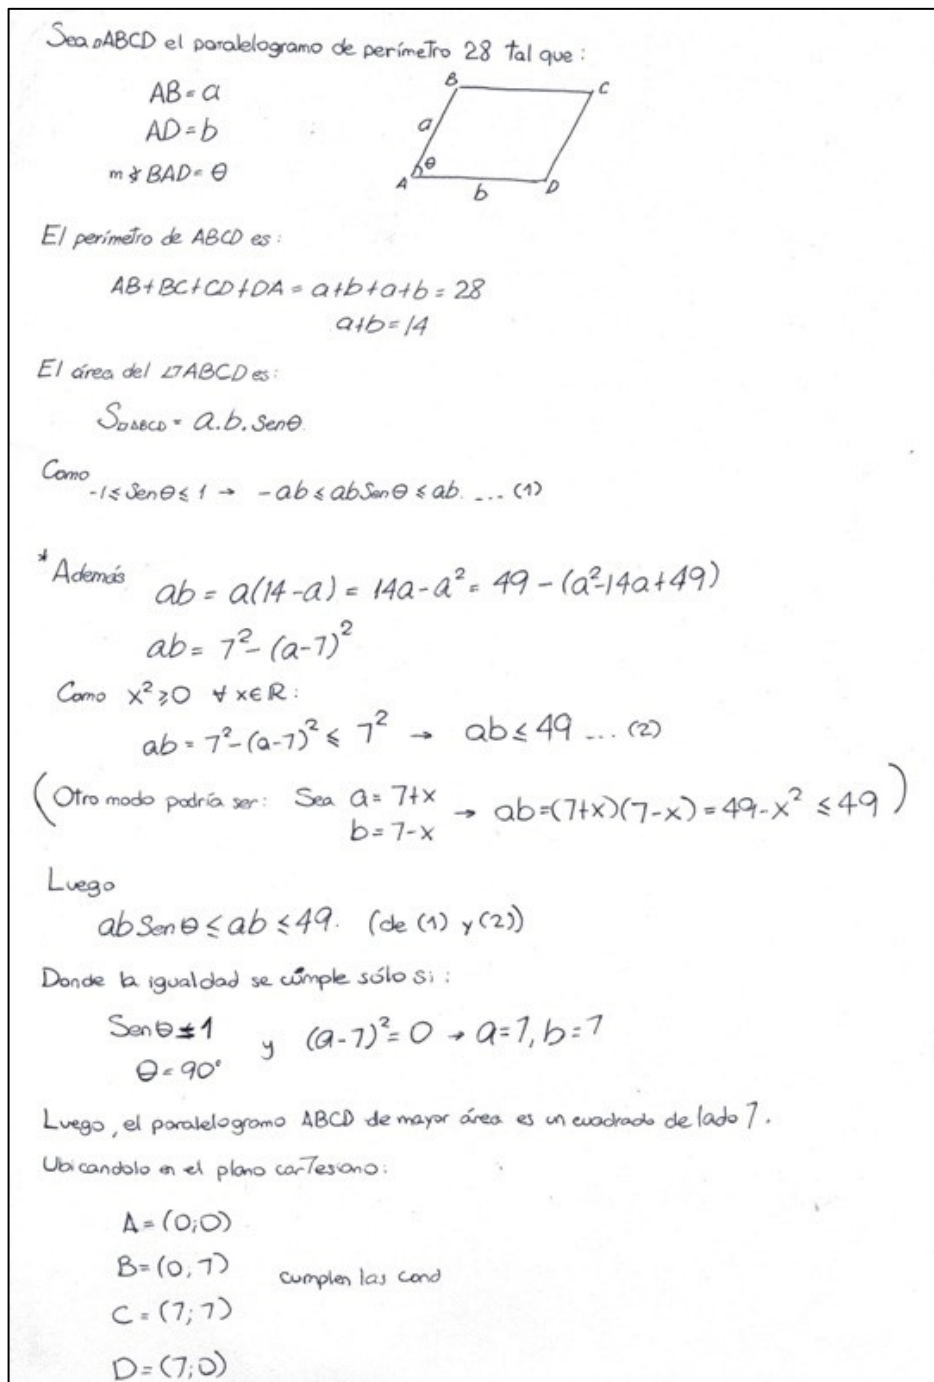 Sea ▱ABCD el paralelogramo de perímetro 28 tal que:
AB = a
AD = b
m∡BAD = θ
B
C
a
θ
A
b
D
El perímetro de ABCD es:
AB+BC+CD+DA = a+b+a+b = 28
a+b = 14
El área del ▱ABCD es:
S▱ABCD = a.b.Senθ.
Como
-1 ≤ Senθ ≤ 1 → -ab ≤ abSenθ ≤ ab. ... (1)
* Además ab = a(14-a) = 14a-a² = 49 - (a²-14a+49)
ab = 7² - (a-7)²
Como x² ≥ 0 ∀ x∈R:
ab = 7²-(a-7)² ≤ 7² → ab ≤ 49 ... (2)
(Otro modo podría ser: Sea a = 7+x
b = 7-x → ab=(7+x)(7-x) = 49-x² ≤ 49)
Luego
abSenθ ≤ ab ≤ 49. (de (1) y (2))
Donde la igualdad se cumple sólo si:
Senθ = 1 y (a-7)² = 0 → a=7, b=7
θ = 90°
Luego, el paralelogramo ABCD de mayor área es un cuadrado de lado 7.
Ubicandolo en el plano cartesiano:
A = (0;0)
B = (0;7) cumplen las cond
C = (7;7)
D = (7;0)